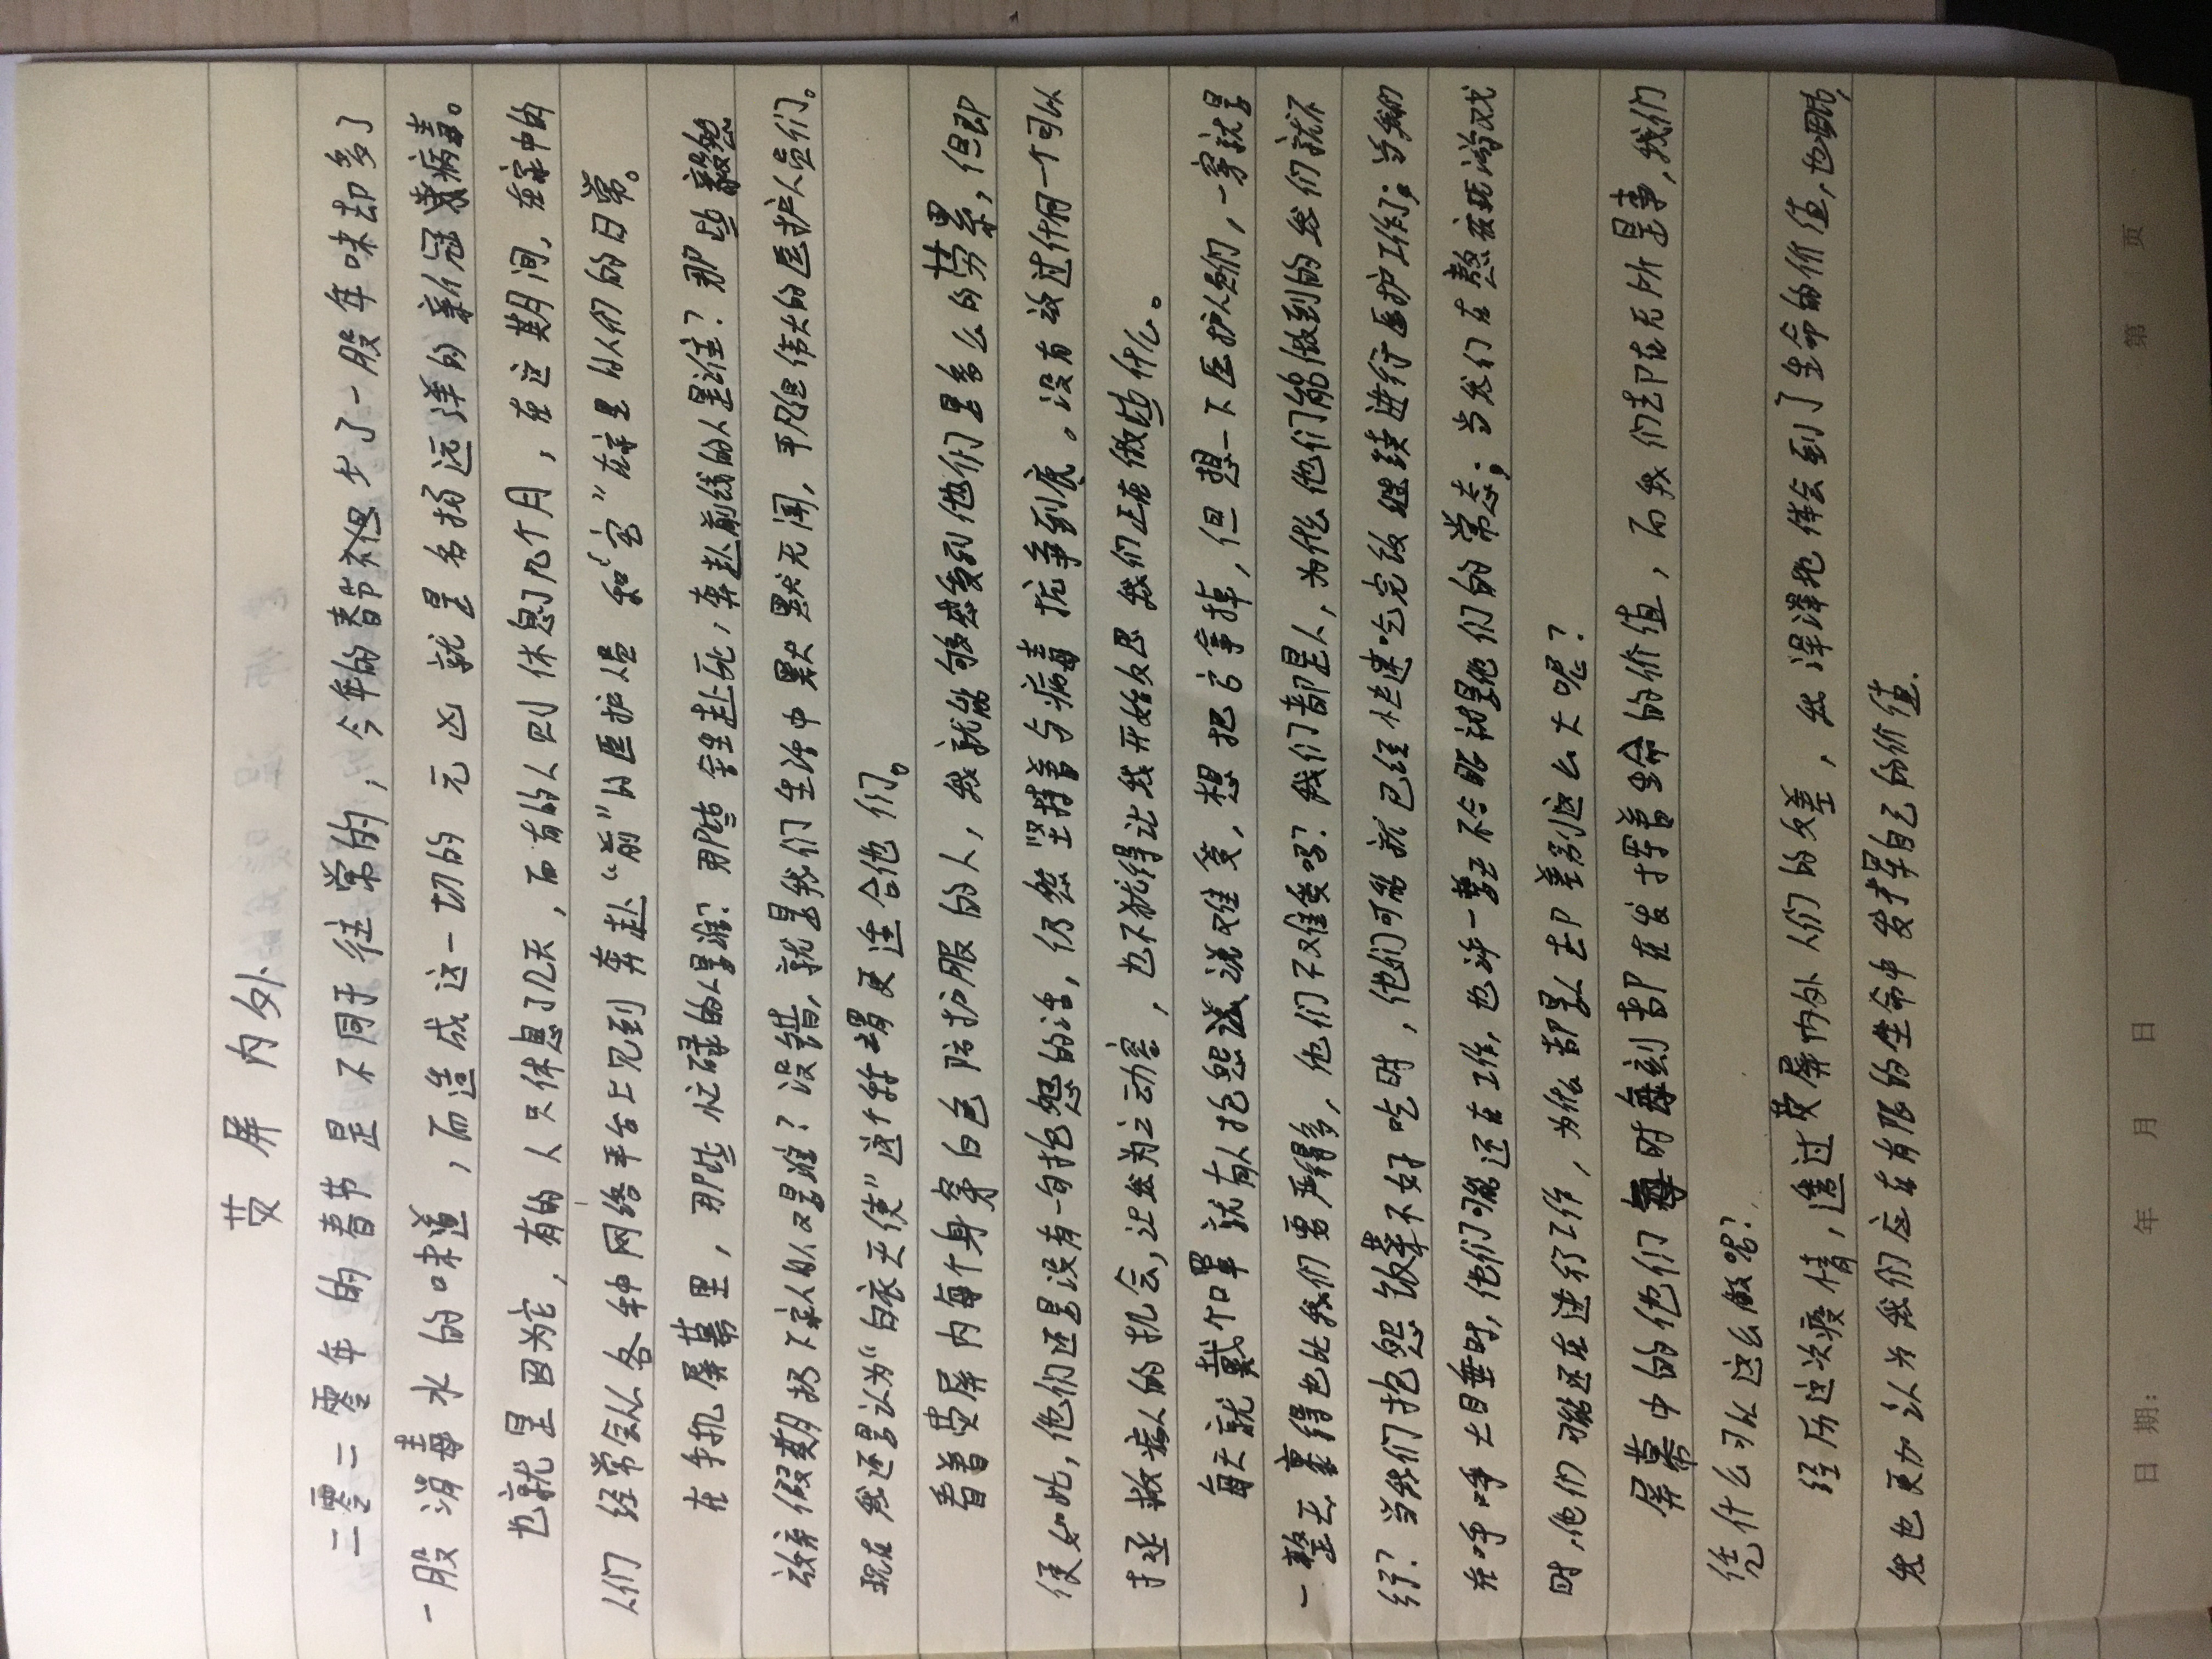 荧屏内外
二零二零年的春节是不同于往常的，今年的春节少了一股年味却多了
一股消毒水的味道，而造成这一切的元凶就是名扬远洋的新冠病毒。
也就是因为它，有的人只休息了几天，而有的人则休息了几个月，在这期间，在家中的
人们经常会从各种网络平台上见到奔赴“前”的医护人员和“宅”在家里的人们的日常。
在手机屏幕里，那些忙碌的人是谁？那些舍生赴死，奔赴前线的人是谁？那些毅然
放弃假期扔下家人的人又是谁？没错，就是我们生活中默默无闻，平凡但伟大的医护人员们。
现在我还是认为“白衣天使”这个称谓更适合他们。
看着荧屏内每个身穿白色防护服的人，我就能够感受到他们是多么的劳累，但即
使如此，他们还是没有一句抱怨的话，仍然坚持着与病毒抗争到底。没有放过任何一个可以
拯救病人的机会，让我为之动容，也不犹得让我开始反思我们正在做些什么。
每天就戴个口罩就有人抱怨说难受，想把它拿掉，但想一下医护人员们，一穿就是
一整天，裹得也比我们要严得多，他们不难受吗？我们都是人，为什么他们能做到的我们就不
行？当我们抱怨饭菜不好吃时，他们可能就已经快速吃完饭继续进行医护工作了；当我们
在呼呼大睡时，他们可能还在工作，也许一整天不合眼就是他们的常态；当我们在熬夜玩游戏
时，他们可能还在进行工作，为什么都是人却差别这么大呢？
屏幕中的他们每时每刻都在发挥着生命的价值，而我们却在无所是事，我们
凭什么可以这么做呢？
经历这次疫情，透过荧屏内外人们的反差，我深深地体会到了生命的价值，也
我也更加认为我们应在有限的生命中发挥自己的价值.
日期： 年 月 日 第 页